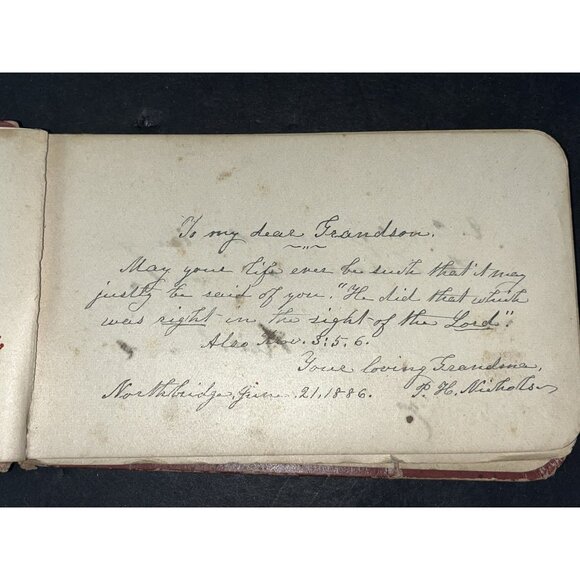 To my dear Grandson,
May your life ever be such that it may
justly be said of you. "He did that which
was right in the sight of the Lord".
Also Prov. 3: 5. 6.
Your loving Grandma,
Northbridge, June 21, 1886. P. H. Nichols